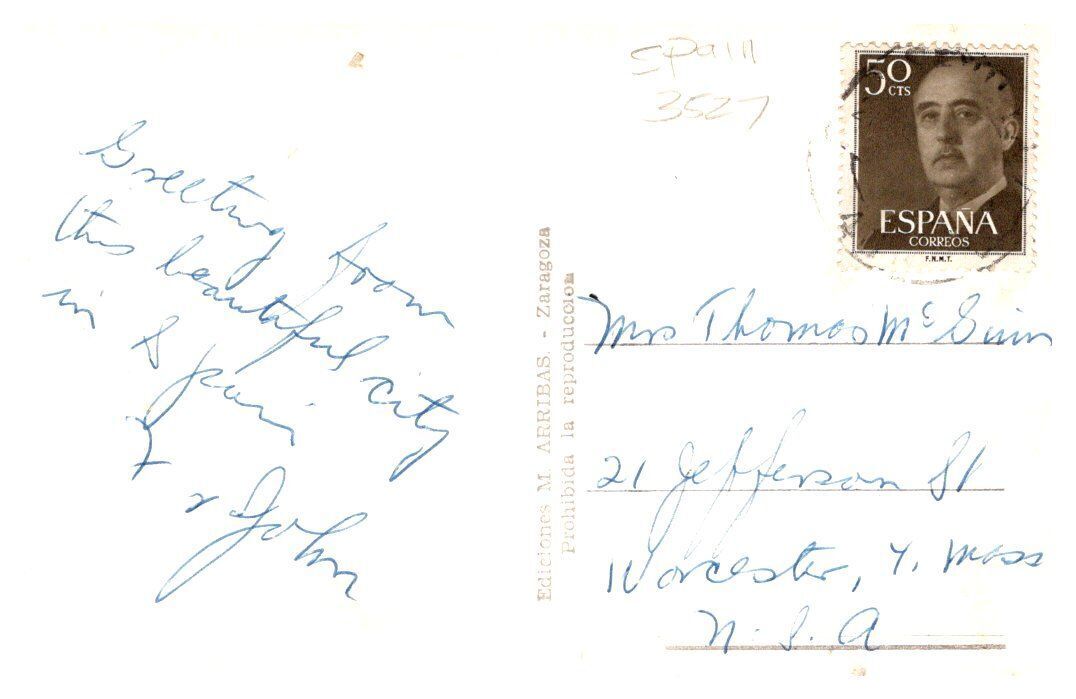 Spain
3527
50 CTS
ESPAÑA
CORREOS
F.N.M.T.
Greeting from
this beautiful city
in Spain
& John
Ediciones M. ARRIBAS. - Zaragoza
Prohibida la reproducción
Mrs Thomas Mc Ginn
21 Jefferson St
Worcester, 4, Mass
U.S.A